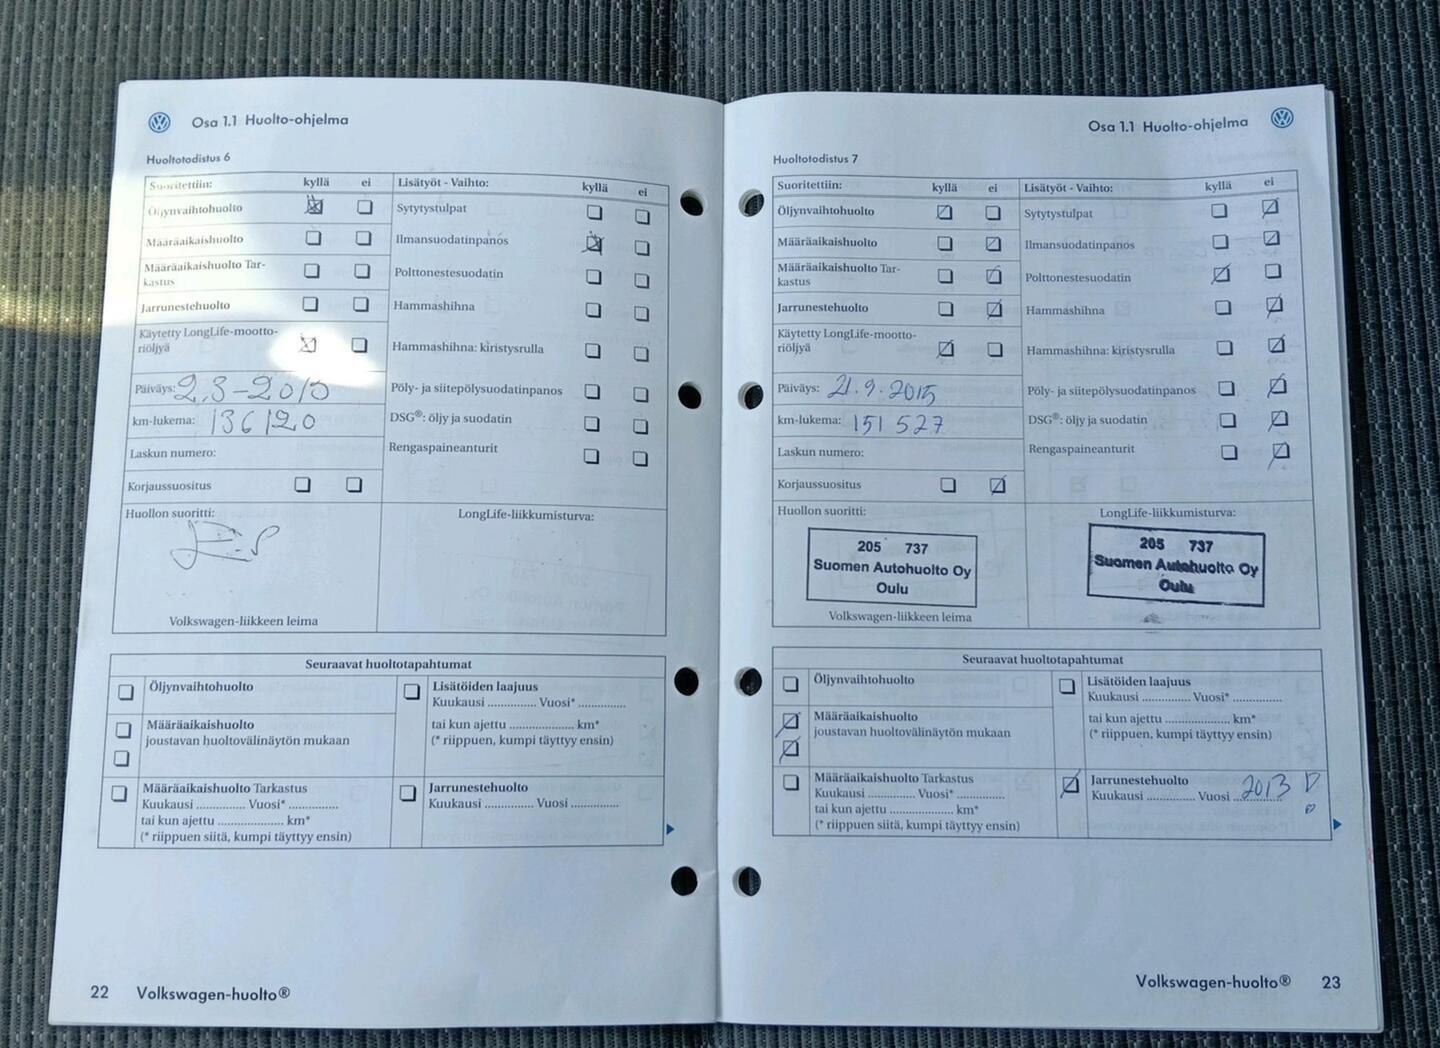 Osa 1.1 Huolto-ohjelma
Huoltotodistus 6
Suoritettiin: kyllä ei
Öljynvaihtohuolto
Määräaikaishuolto
Määräaikaishuolto Tar-
kastus
Jarrunestehuolto
Käytetty LongLife-mootto-
riöljyä
Päiväys: 2.3-2015
km-lukema: 136120
Laskun numero:
Korjaussuositus
Lisätyöt - Vaihto: kyllä ei
Sytytystulpat
Ilmansuodatinpanos
Polttonestesuodatin
Hammashihna
Hammashihna: kiristysrulla
Pöly- ja siitepölysuodatinpanos
DSG®: öljy ja suodatin
Rengaspaineanturit
Huollon suoritti:
Volkswagen-liikkeen leima
LongLife-liikkumisturva:
Seuraavat huoltotapahtumat
Öljynvaihtohuolto
Määräaikaishuolto
joustavan huoltovälinäytön mukaan
Määräaikaishuolto Tarkastus
Kuukausi .............. Vuosi* ..............
tai kun ajettu ................... km*
(* riippuen siitä, kumpi täyttyy ensin)
Lisätöiden laajuus
Kuukausi .............. Vuosi* ..............
tai kun ajettu ................... km*
(* riippuen, kumpi täyttyy ensin)
Jarrunestehuolto
Kuukausi .............. Vuosi ..............
22 Volkswagen-huolto®
Osa 1.1 Huolto-ohjelma
Huoltotodistus 7
Suoritettiin: kyllä ei
Öljynvaihtohuolto
Määräaikaishuolto
Määräaikaishuolto Tar-
kastus
Jarrunestehuolto
Käytetty LongLife-mootto-
riöljyä
Päiväys: 21.9.2015
km-lukema: 151 527
Laskun numero:
Korjaussuositus
Lisätyöt - Vaihto: kyllä ei
Sytytystulpat
Ilmansuodatinpanos
Polttonestesuodatin
Hammashihna
Hammashihna: kiristysrulla
Pöly- ja siitepölysuodatinpanos
DSG®: öljy ja suodatin
Rengaspaineanturit
Huollon suoritti:
205 737
Suomen Autohuolto Oy
Oulu
Volkswagen-liikkeen leima
LongLife-liikkumisturva:
205 737
Suomen Autohuolto Oy
Oulu
Seuraavat huoltotapahtumat
Öljynvaihtohuolto
Määräaikaishuolto
joustavan huoltovälinäytön mukaan
Määräaikaishuolto Tarkastus
Kuukausi .............. Vuosi* ..............
tai kun ajettu ................... km*
(* riippuen siitä, kumpi täyttyy ensin)
Lisätöiden laajuus
Kuukausi .............. Vuosi* ..............
tai kun ajettu ................... km*
(* riippuen, kumpi täyttyy ensin)
Jarrunestehuolto
Kuukausi .............. Vuosi 2013
Volkswagen-huolto® 23